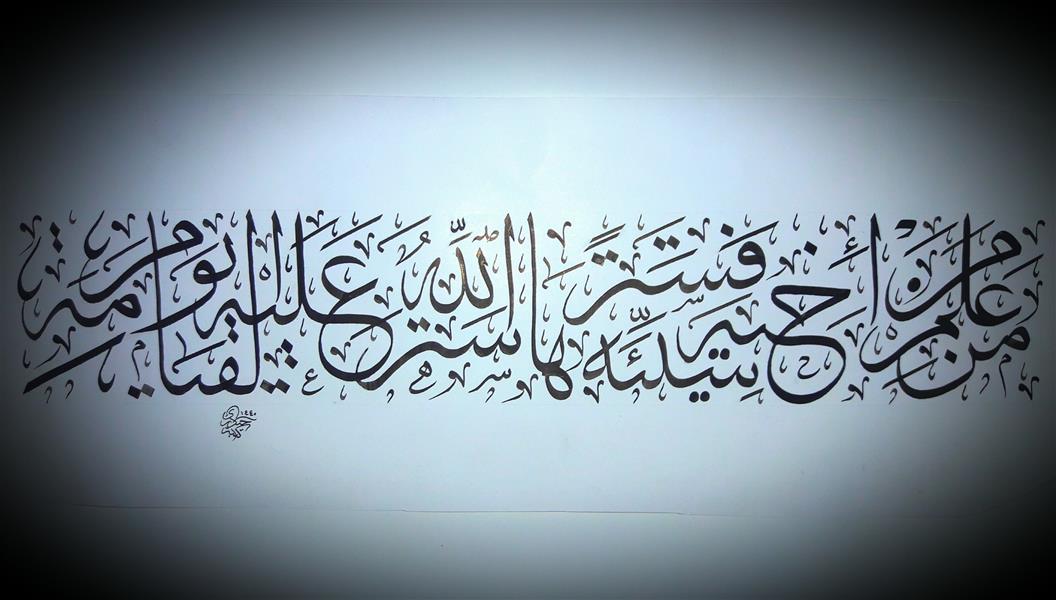 من علم من أخيه سيئة فسترها ستر الله عليه يوم القيامة
١٤٤٠